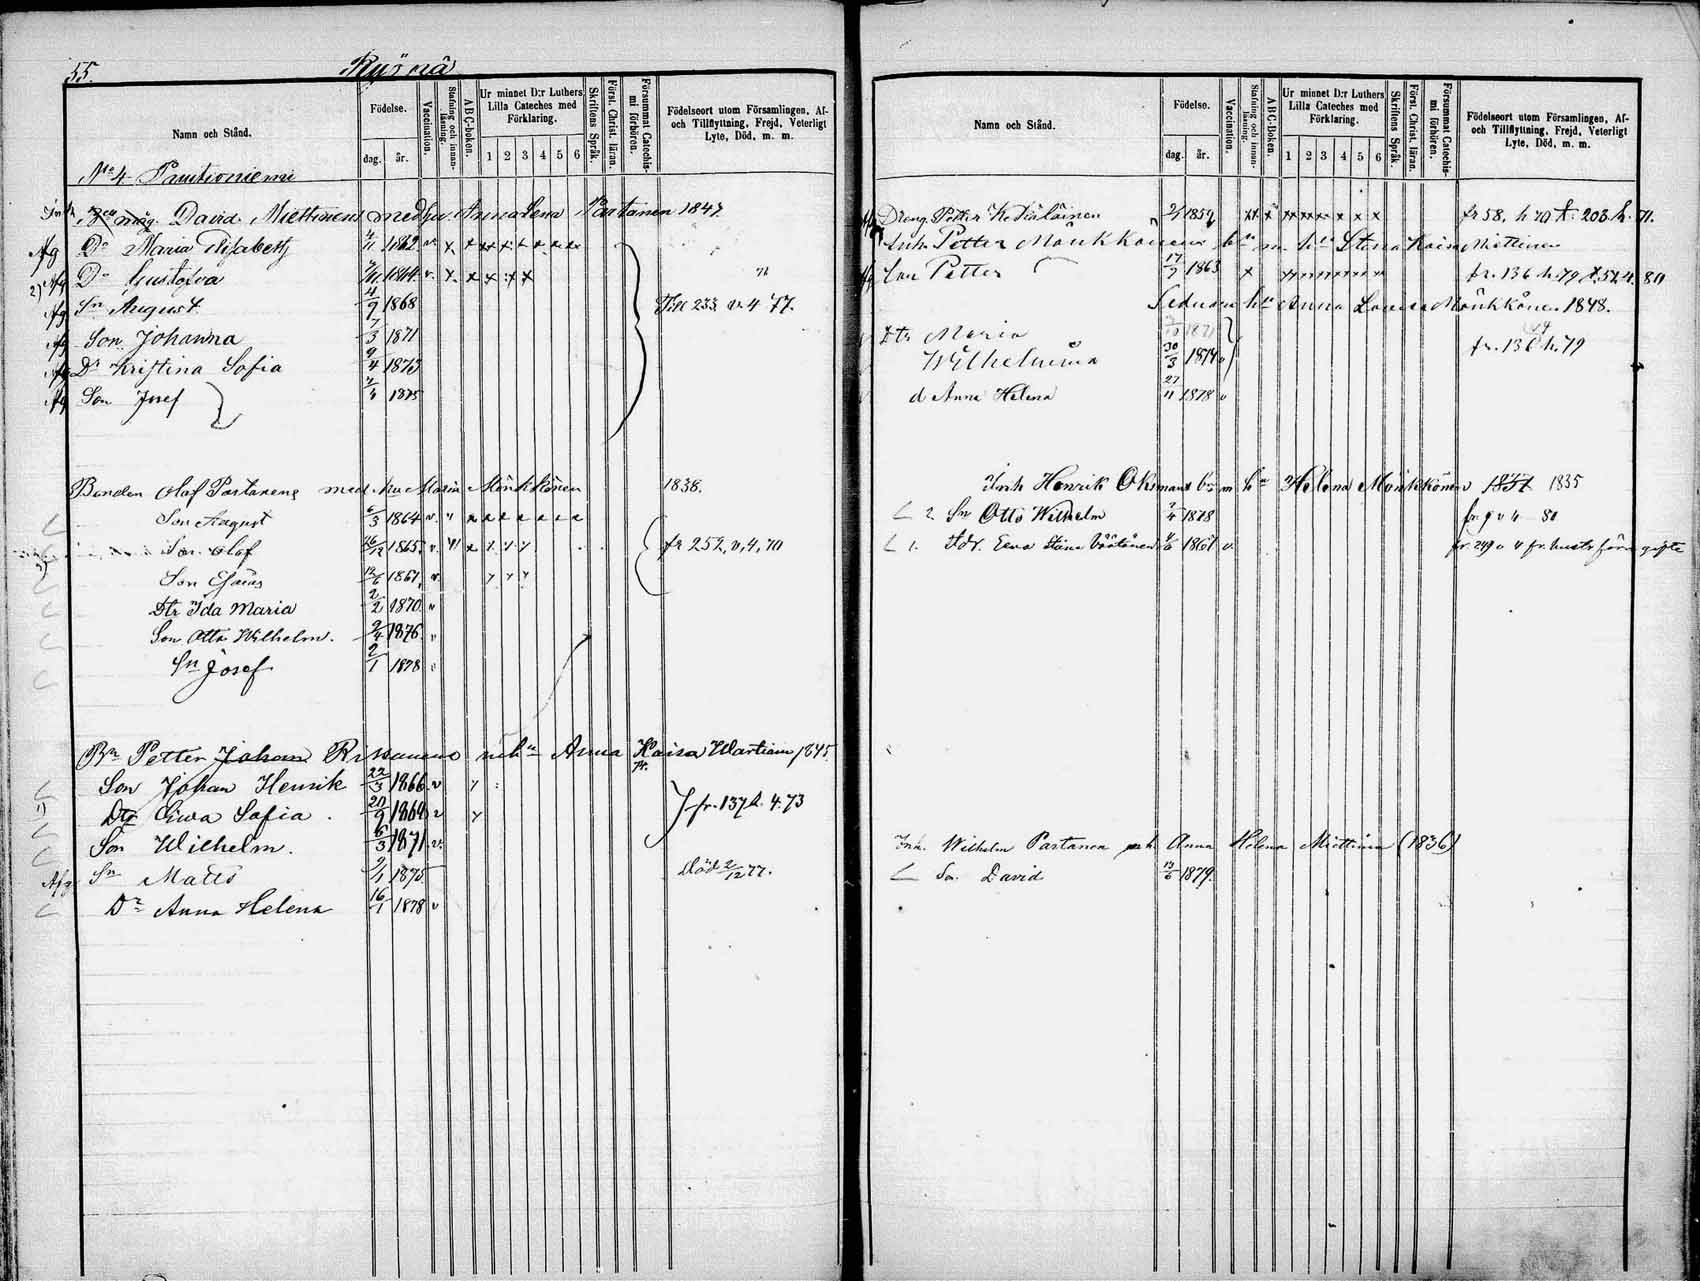 55.
Rysnä
Namn och Stånd.
Födelse.
dag. år.
Vaccination.
Stafning och innan-läsning.
ABC-boken.
Ur minnet D:r Luthers Lilla Cateches med Förklaring.
1 2 3 4 5 6
Skriftens Språk.
Först. Christ. läran.
Försummat Catechis-mi förhören.
Födelseort utom Församlingen, Af- och Tillflyttning, Frejd, Veterligt Lyte, Död, m. m.
No 4
David Miettinens med hu. Anna Lena Partanen 1847.
Afg Dr Maria Elisabeth 4/11 1862 v. x x xx x x x x x
2) Afg Dr Gustafva 1864 v. x x x x x x
Afg Sn August 4/9 1868 233 v 4 77.
Afg Son Johanna 7/3 1871
Afg Dr Kristina Sofia 9/4 1873
Afg Son Josef 1875
Bonden Olof Partanens med hu Maria Mönkkönen 1838.
Son August 6/3 1864 v. " x x x x x x x
Son Olof 26/12 1865 v. fr 252, v, 4, 70
Son Esaias 12/6 1867 v.
Dtr Ida Maria 2/2 1870 v
Son Otto Wilhelm. 2/4 1876 v
Sn Josef 2/1 1878 v
Bn Petter Johan Rissanens mhu Anna Kaisa Martiain 1845
Son Johan Henrik 22/3 1866 v
Dtr Ewa Sofia 20/9 1869 v fr. 137 h. 4. 73
Son Wilhelm. 6/3 1871 v.
Afg Sn Matts 9/1 1875 död 2/12 77.
Dr Anna Helena 16/1 1878 v
Namn och Stånd.
Födelse.
dag. år.
Vaccination.
Stafning och innan-läsning.
ABC-Boken.
Ur minnet D:r Luthers Lilla Cateches med Förklaring.
1 2 3 4 5 6
Skriftens Språk.
Först. Christ. läran.
Försummat Catechis-mi förhören.
Födelseort utom Församlingen, Af- och Tillflyttning, Frejd, Veterligt Lyte, Död, m. m.
Dreng Petter fr 58. h 70 t. 203 h. 71.
Inh. Petter Mönkkönens bn m. hu Stina Kaisa Miettinen
Afg Son Petter 17/7 1863 x fr. 136 h. 79 t. 80
Sednare hu Anna Lovisa Mönkkönen 1848.
Dtr Maria fr. 136 h. 79
Wilhelmina 30/3 1874 v
d Anna Helena 27/11 1878 v
Inh Henrik Oksmans bn m hu Helena Mönkkönen 1837 1835
2 Sn Otto Wilhelm 1878 fr. 9 v 4 80
1. Eeva Stina 1861 v. fr. 249 v 4 fr. hustr. förra gifte
Inh. Wilhelm Partanen mh. Anna Helena Miettinen (1836)
Sn. David 13/6 1879.